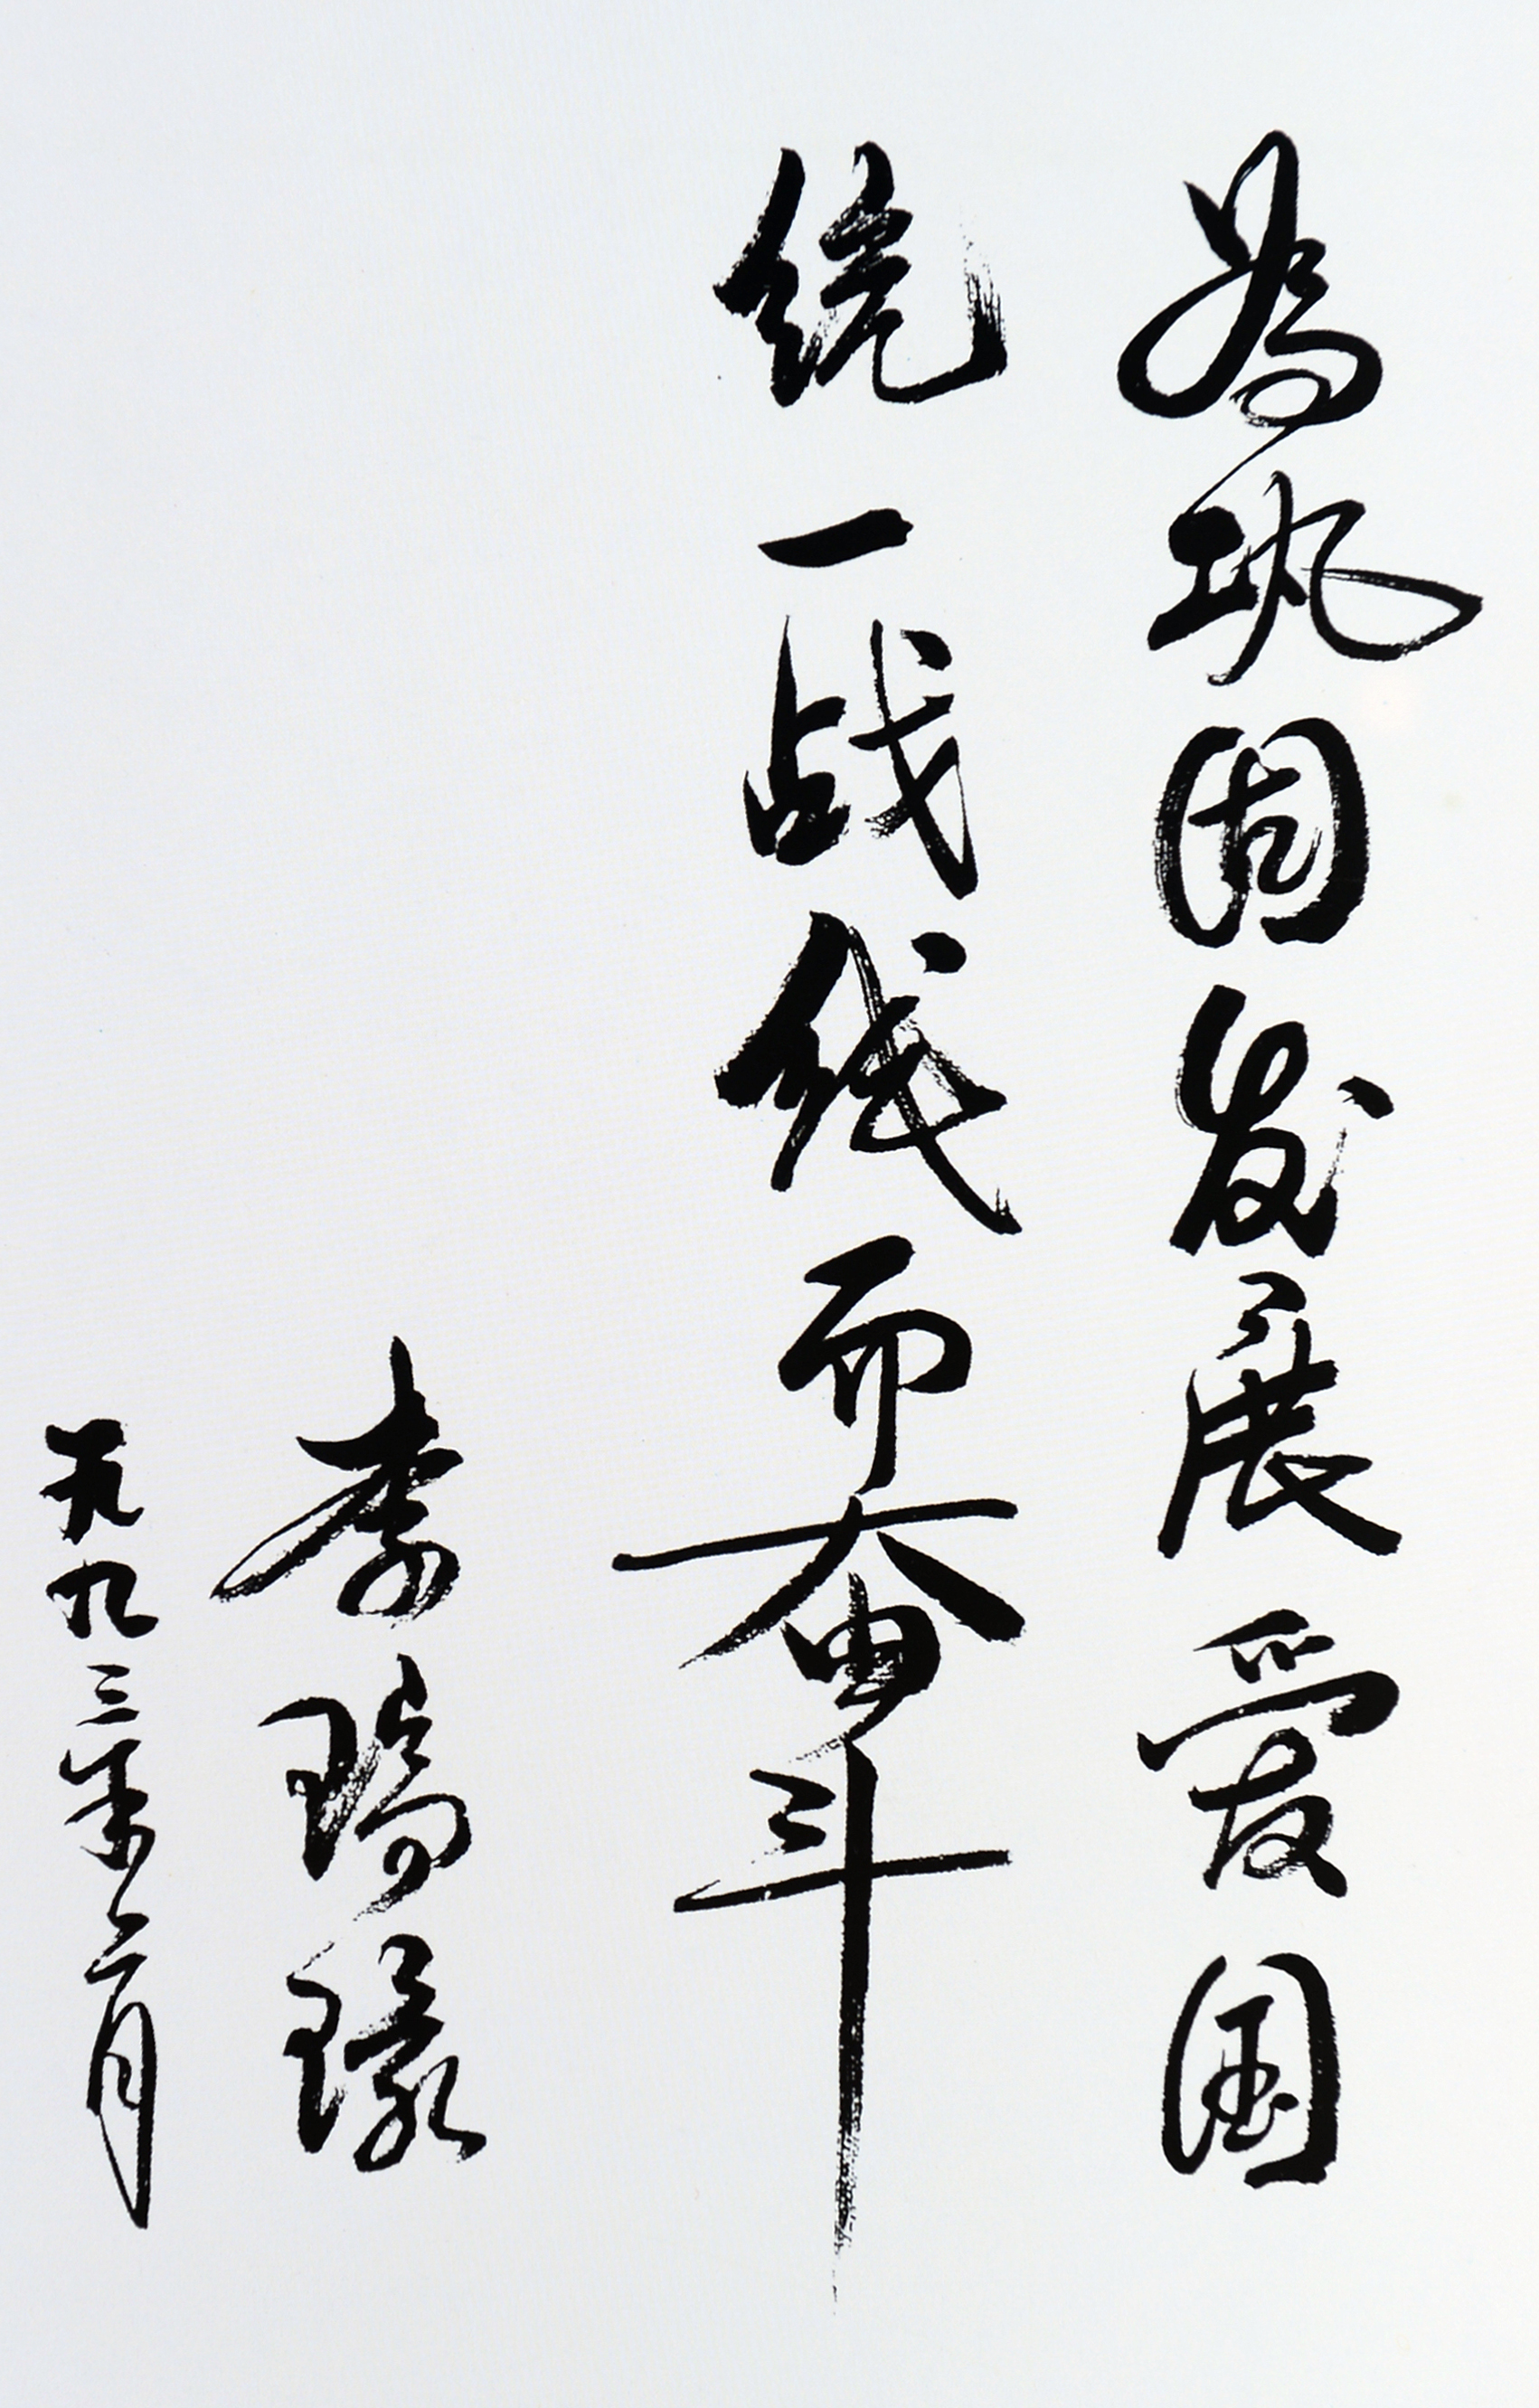 為巩固发展爱国
统一战线而奋斗
李瑞環
一九九三年月